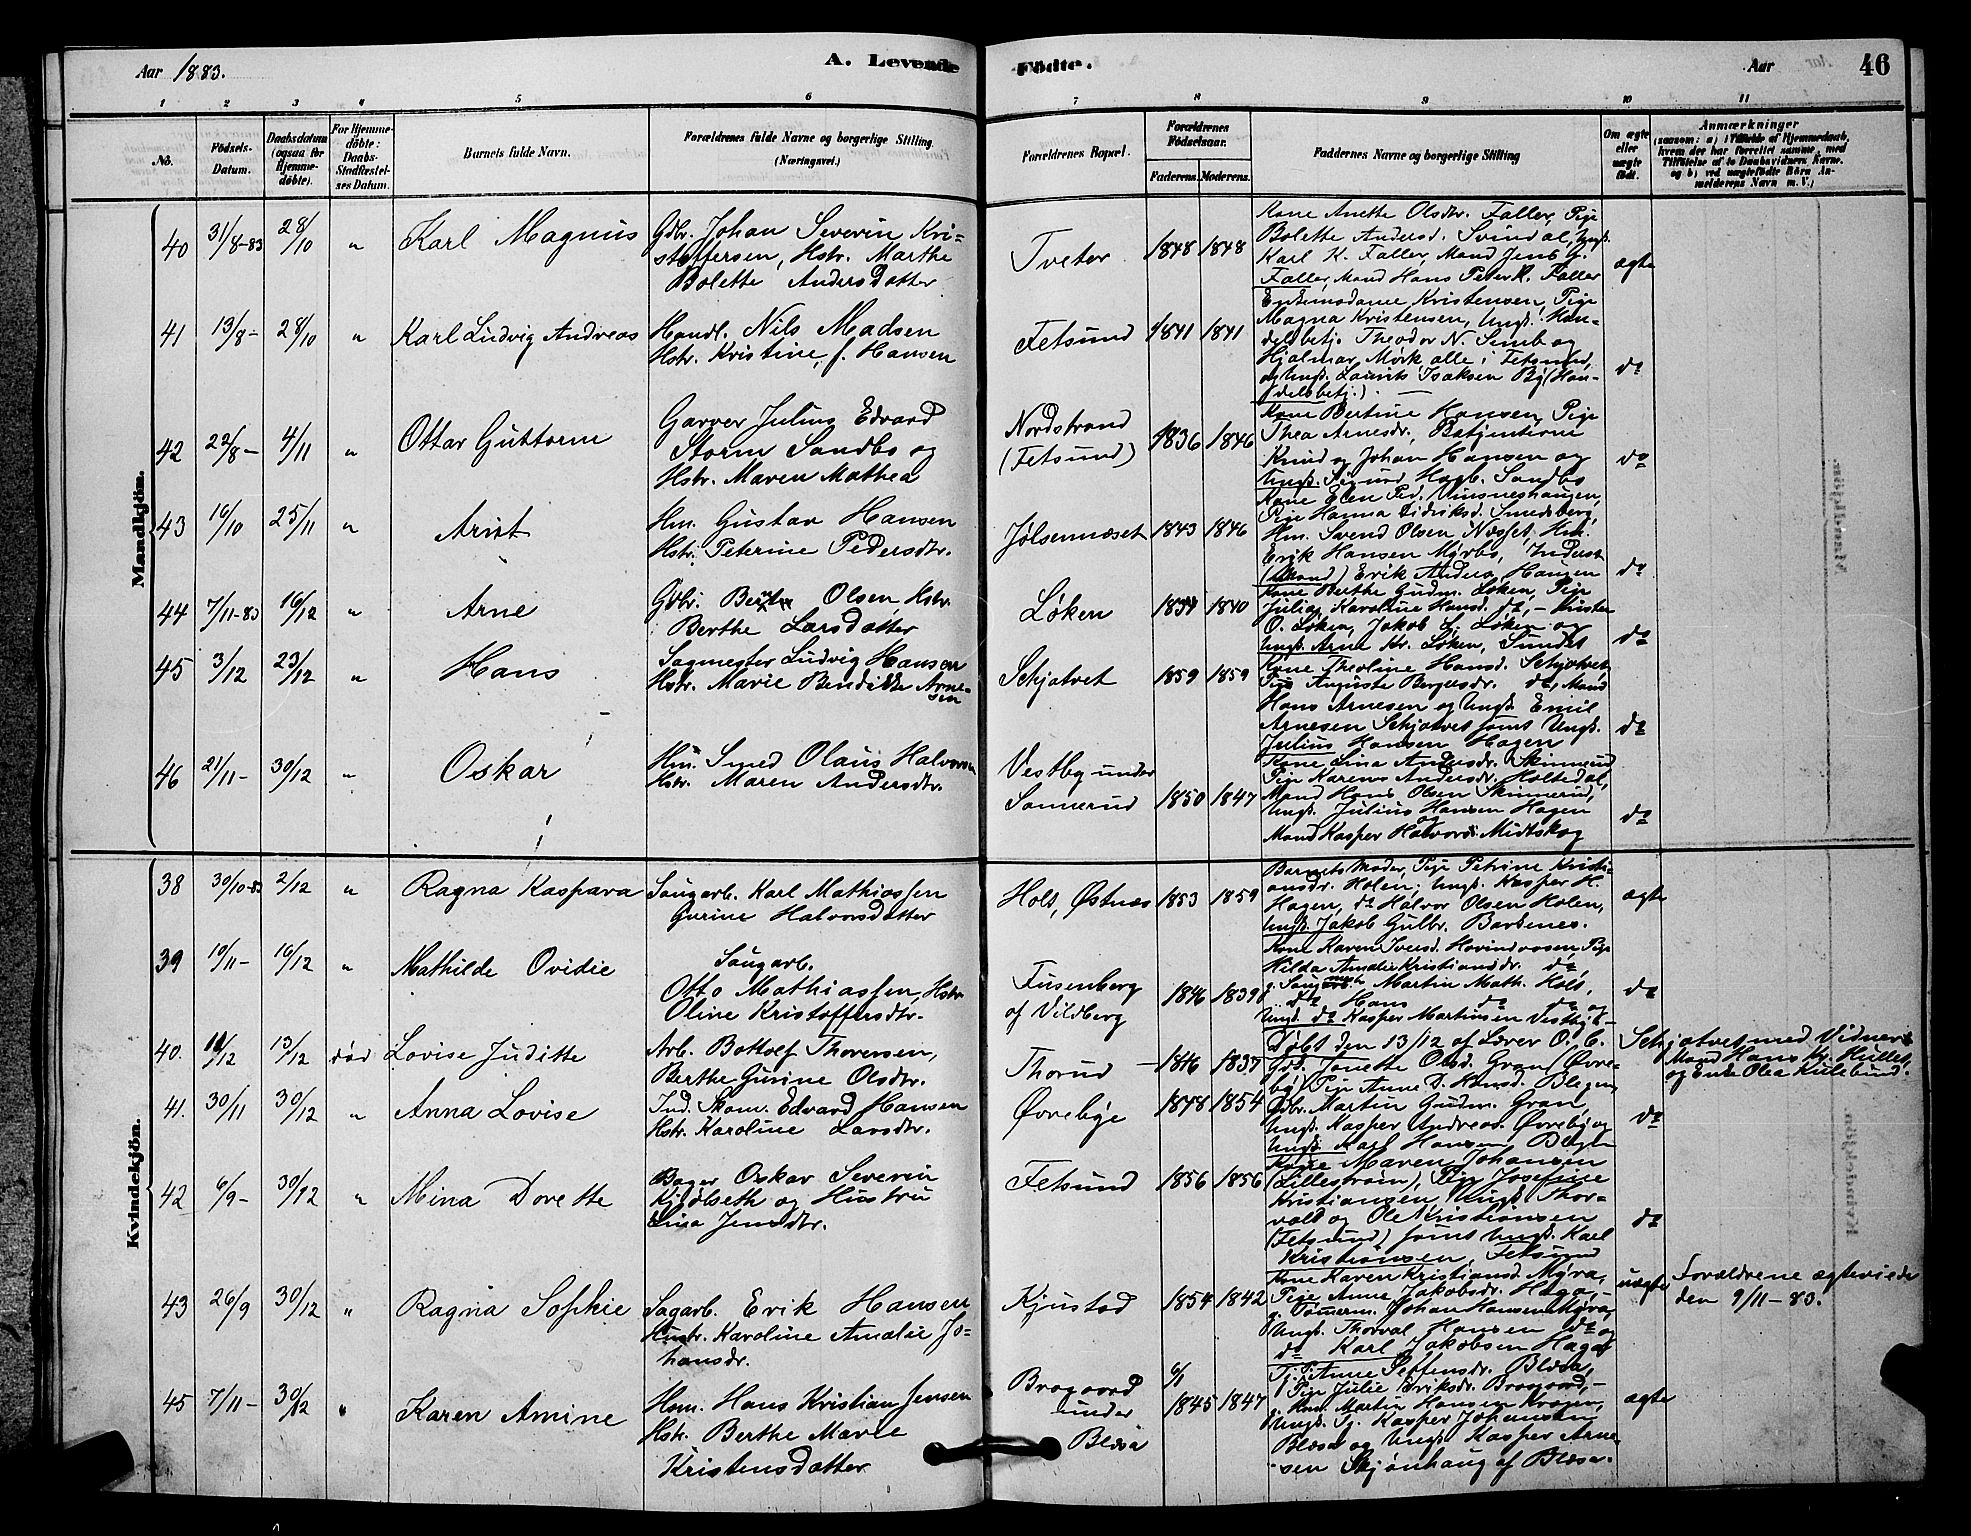 Aar 1883.
A. Levende Födte.
Aar
46
1 2 3 4 5 6 7 8 9 10 11
No.
Födsels-Datum.
Daabsdatum (ogsaa for Hjemme-döbte).
For Hjemme-döbte: Daabs-Stadfæstel-ses Datum.
Barnets fulde Navn.
Forældrenes fulde Navne og borgerlige Stilling. (Næringsvei.)
Forældrenes Bopæl.
Forældrenes Födselsaar.
Faderens. Moderens.
Faddernes Navne og borgerlige Stilling
Om ægte eller uægte födt.
Anmærkninger
(saasom: a) i Tilfælde af Hjemmedaab, hvem der har forrettet samme, med Tilføielse af to Daabsvidners Navne. og b) ved uægtefödte Börn An-melderens Navn m. V.)
Mandkjön.
40 31/8-83 28/10 " Karl Magnus
Gbr. Johan Severin Kri-
stoffersen, Hstr. Marthe
Bolette Andersdatter
Tveter 1848 1848
Kone Anette Olsdtr. Faller, Pige
Bolette Andersd. Svindal, Ungk.
Karl K. Faller, Mand Jens J.
Faller, Mand Hans Peter K. Faller
ægte
41 13/8- 28/10 " Karl Ludvig Andreas
Handl. Nils Madsen
Hstr. Kristine, f. Hansen
Fetsund 1841 1841
Enkemadame Kristensen, Pige
Magna Kristensen, Ungk. Han-
delsbetj. Theodor N. og
Hjalmar Mørk alle i Fetsund,
og Ungk. Laurits Isaksen By (Han-
delsbetj.).
do
42 22/8- 4/11 " Ottar Guttorm
Garver Julius Edvard
Storm Sandbo og
Hstr. Maren Mathea
Nordstrand
(Fetsund) 1836 1846
Kone Bertine Hansen, Pige
Thea Arnesdr., Betjenterne
Knud og Johan Hansen og
Ungk. Sigurd Hagb. Sandbo
do
43 16/10 25/11 " Arnt
Hm. Gustav Hansen
Hstr. Peterine Pedersdtr.
Jølsenneset 1843 1846
Kone Elen Ped. Vinsneshaugen,
Pige Hanna Didriksd. Smedsberg,
Hm. Svend Olsen Næsset, Hm.
Erik Hansen Myrbo, Inderst
(Mand) Erik Anders. Haugen
do
44 7/11-83 16/12 " Arne
Gbr. Olsen, Hstr.
Berthe Larsdatter
Løken 1834 1840
Kone Berthe Gudm. Løken, Pige
Julia Karoline Hansd. do, - Kristen
O. Løken, Jakob L. Løken og
Ungk. Arne Kr. Løken, Sundet
do
45 3/12 23/12 " Hans
Sagmester Ludvig Hansen
Hstr. Marie Bendikte Arne-
sen
Schjatvet 1859 1859
Kone Theoline Hansd. Schjatvet,
Pige Auguste Bergesdr. do, Mand
Hans Arnesen og Ungk. Emil
Arnesen Schjatvet samt Ungk.
Julius Hansen Hagen
do
46 21/11- 30/12 " Oskar
Hm. Smed Olaus Halvorsen
Hstr. Maren Andersdtr.
Vestby under
Sannerud 1850 1847
Kone Lina Andersdr. Skinnerud
Pige Karens Andersdr. Holtedal,
Mand Hans Olsen Skinnerud,
Ungk. Julius Hansen Hagen
og
Mand Kasper Halvors. Midtskog
do
Kvindekjön.
38 30/10-83 2/12 " Ragna Kaspara
Saugarb. Karl Mathiassen
Gurine Halvorsdatter
Hols, Østnes 1853 1859
Barnets Moder, Pige Petrine Kristi-
ansdr. Holen, Ungk. Kasper H.
Hagen, do Halvor Olsen Holen,
Ungk. Jakob Gulbr. Bardenes.
ægte
39 10/11- 16/12 " Mathilde Ovidie
Saugarb.
Otto Mathiassen, Hstr.
Oline Kristoffersdtr.
Fusenberg
af Vildberg 1846 1839
Kone Karen Iversd. Hovindvosen, Pige
Hilda Amalie Kristiansdr. do
Martin Math. Hols,
do Hans do do og
Ungk. do Kasper Martinsen Vestby
do
40. 11/12 13/12 død Lovise Juditte
Arb. Bottolf Thoresen,
Berthe Gurine Olsdtr.
Thorud - 1846 1837
Døbt den 13/12 af Lærer O. C. Schjatvet med Vidner:
Mand Hans Kj. Hullet
og Enke Olea Kullebund.
41. 30/11 30/12 " Anna Lovise
Ind. Skom. Edvard Hansen
Hstr. Karoline Larsdtr.
Øvrebye 1848 1854
Gbr. Jonette Olsd. Gran (Øvre-
by) Pige Anne D. Hansd. Blegen,
Gbr. Martin Gudm. Gran,
Ungk. Kasper Andreas. Øvreby og
Ungk. Karl Hansen Blegen
do
42 6/9- 30/12 " Mina Dorette
Bager Oskar Severin
Kjølseth og Hustru
Lina Jensdtr.
Fetsund 1856 1856
Kone Maren Johansen
(Lillestrøm), Pige Josefine
Kristiansen, Ungk. Thor-
vald og Ole Kristiansen
(Fetsund) samt Ungk. Karl
Kristiansen, Fetsund
do
43 26/9 30/12 " Ragna Sophie
Sagarb. Erik Hansen
Hustr. Karoline Amalie Jo-
hansdr.
Kjustad 1854 1842
Kone Karen Kristiansd. Myra,
Pige Anne Jakobsdr. Haga, -
g. Tømmerm. Johan Hansen Myra,
Ungk. Thorval Hansen do og
do Karl Jakobsen Haga
uægte
Forældrene ægteviede
den 9/11-83.
45 7/11- 30/12 " Karen Amine
Hsm. Hans Kristian Jensen
Hstr. Berthe Marie
Kristensdatter
Bragaard
under
Blæsa
6/1
1845 1847
Tj. P. Anne Steffensdr. Blæsa,
Pige Julie Eriksdr. Bragaard, -
g. Hsm. Martin Hansen Kragen,
Ungk. Tj. Kasper Johansen
Blæsa og Ungk. Kasper Arne-
sen Skjønhaug af Blæsa.
ægte